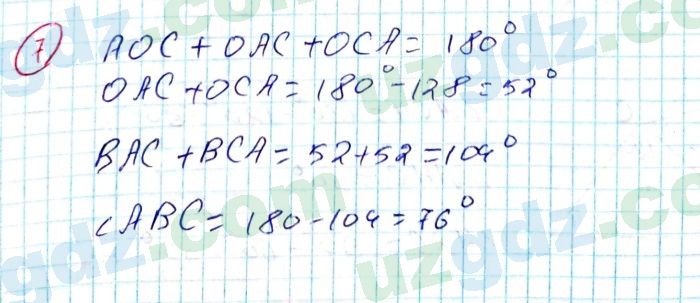 7 AOC + OAC + OCA = 180°
OAC + OCA = 180° - 128 = 52°
BAC + BCA = 52 + 52 = 104°
∠ABC = 180 - 104 = 76°
gdz.com
uzgdz.com
uzgdz.com